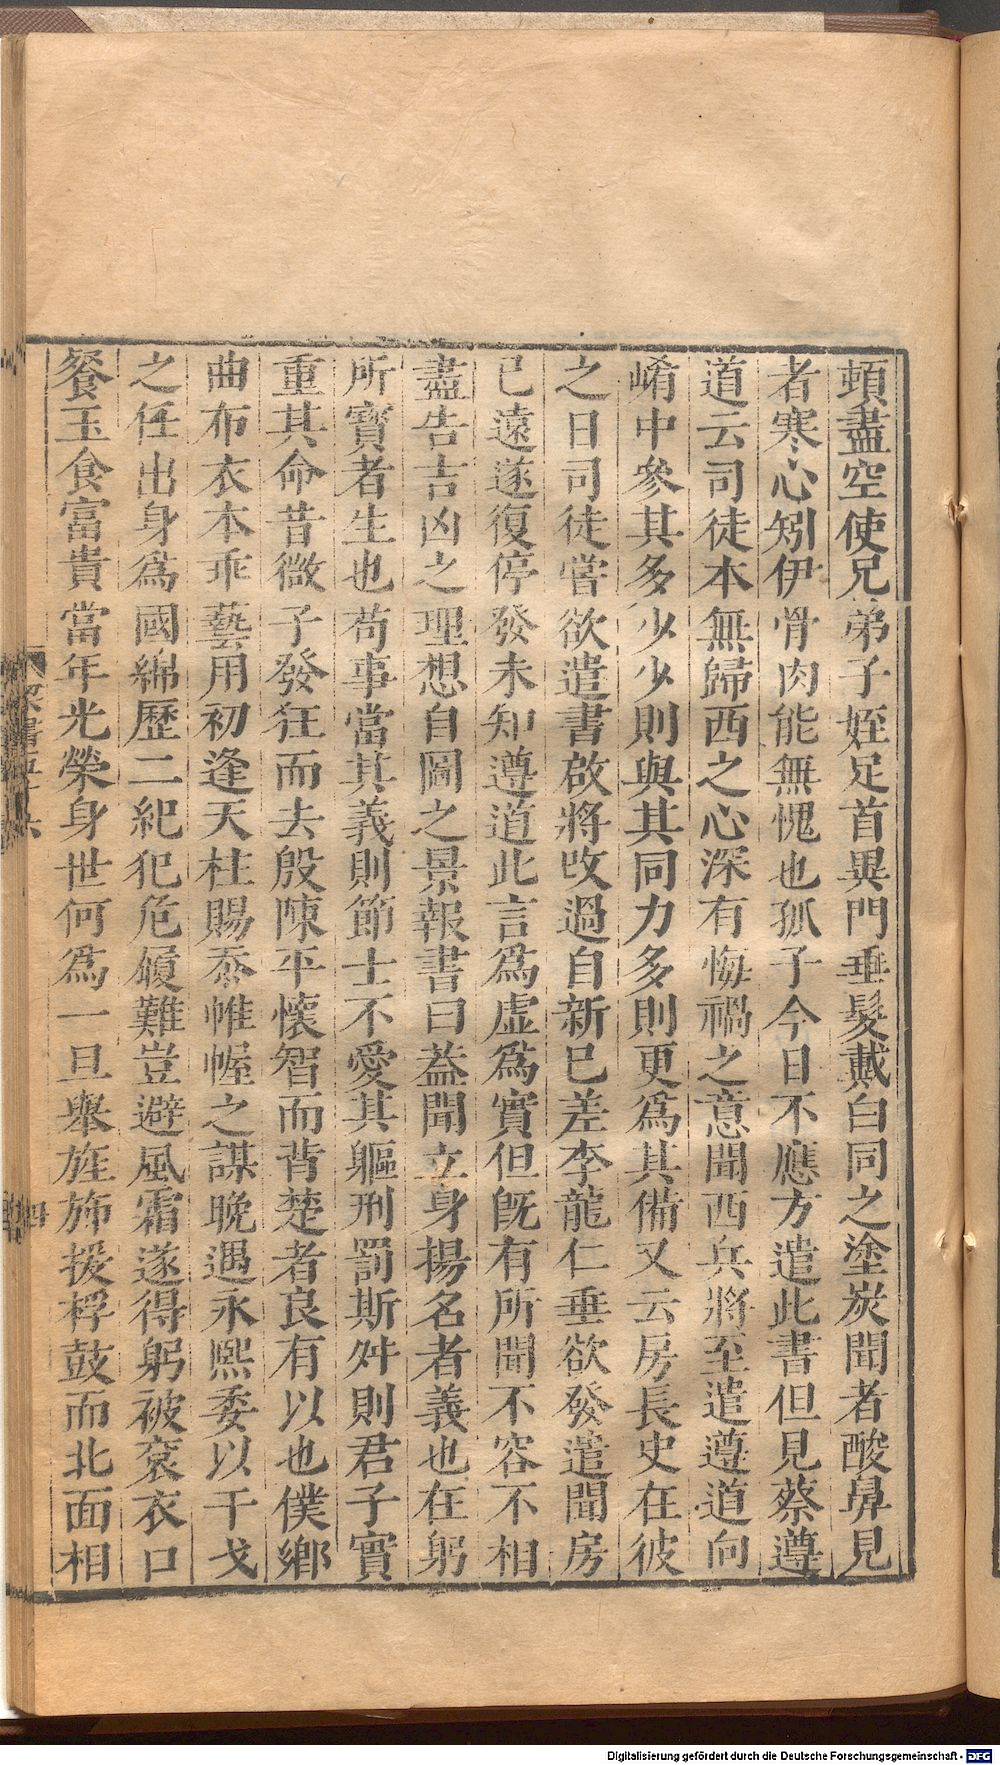 頓盡空使兄弟子姪足首異門垂髮戴白同之塗炭聞者酸鼻見
者寒心矧伊骨肉能無愧也孤子今日不應方遣此書但見蔡遵
道云司徒本無歸西之心深有悔禍之意聞西兵將至遣遵道向
崤中參其多少少則與其同力多則更爲其備又云房長史在彼
之日司徒嘗欲遣書啟將改過自新已差李龍仁垂欲發遣聞房
已遠遂復停發未知遵道此言爲虛爲實但旣有所聞不容不相
盡告吉凶之理想自圖之景報書曰葢聞立身揚名者義也在躬
所寶者生也苟事當其義則節士不愛其軀刑罰斯舛則君子實
重其命昔微子發狂而去殷陳平懷智而背楚者良有以也僕鄉
曲布衣本乖藝用初逢天柱賜忝帷幄之謀晚遇永熙委以干戈
之任出身爲國綿歷二紀犯危履難豈避風霜遂得躬被袞衣口
餐玉食富貴當年光榮身世何爲一旦舉旌斾援桴鼓而北面相